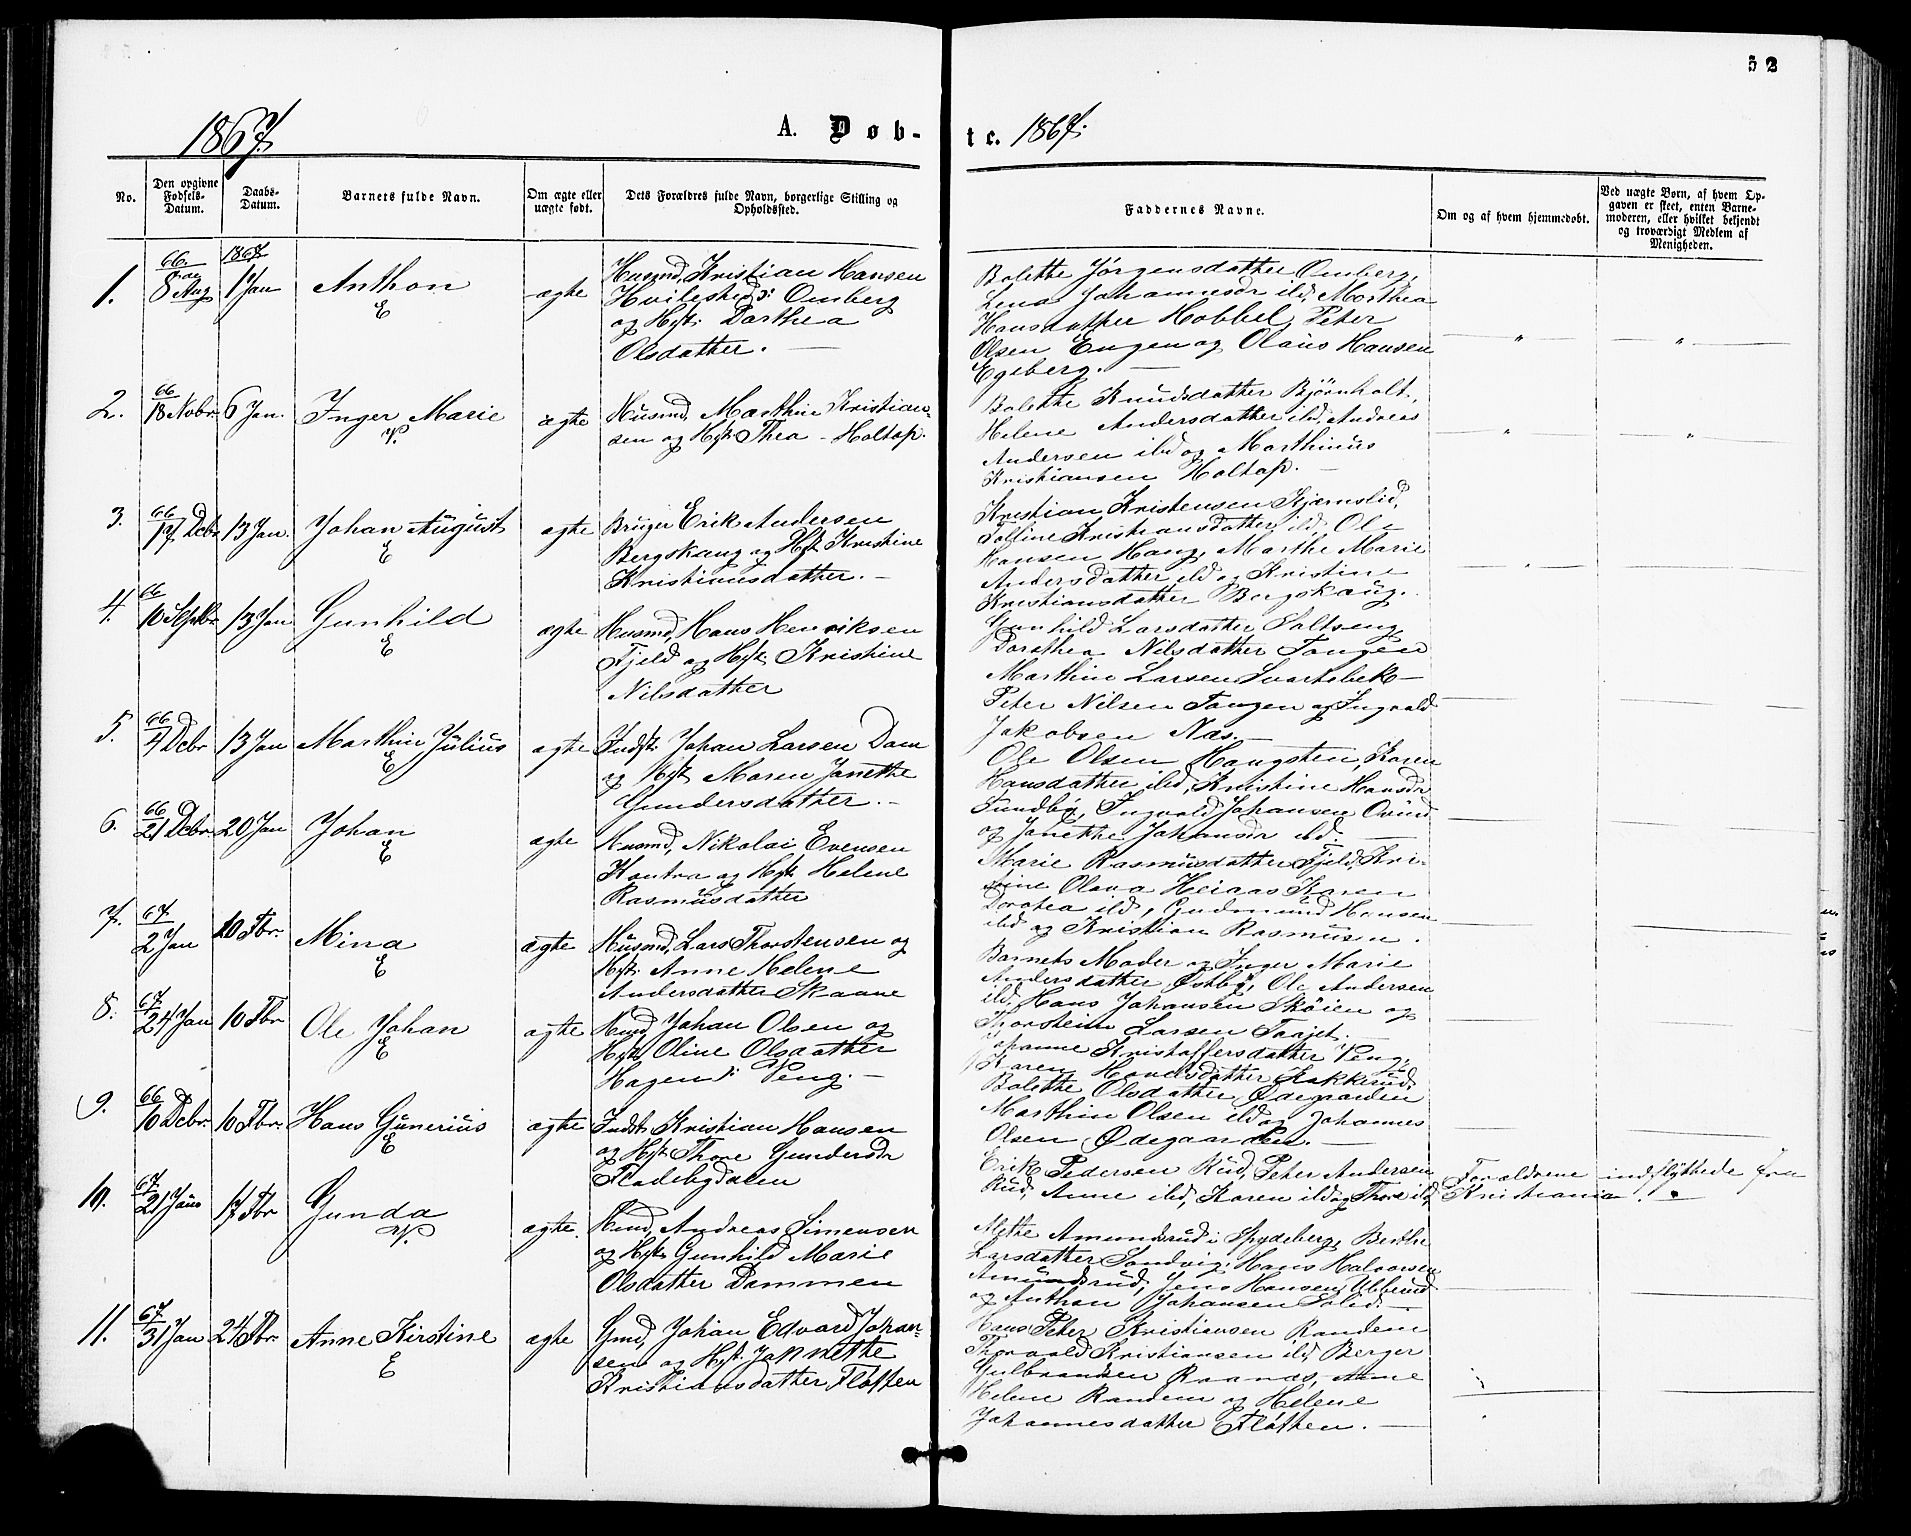 52
1867.
A. Døb-
te. 1867.
No.
Den opgivne
Fødsels-
Datum.
Daabs-
Datum.
Barnets fulde Navn.
Om ægte eller
uægte født.
Dets Forældres fulde Navn, borgerlige Stilling og
Opholdssted.
Faddernes Navne.
Om og af hvem hjemmedøbt.
Ved uægte Børn, af hvem Op-
gaven er skeet, enten Barne-
moderen, eller hvilket bekjendt
og troværdigt Medlem af
Menigheden.
1.
66.
8 Aug
1867.
1 Jan
Anthon
E
ægte
Husmd, Kristian Hansen
Hvilested Omberg
og Hst. Dorthea
Olsdatter. —
Bolette Jørgensdatter Omberg,
Lena Johannesdr ibd, Marthea
Hansdatter Hobbel, Peter
Olsen Engen og Olaus Hansen
Egeberg. —
2.
66
18 Novbr.
6 Jan.
Inger Marie
V.
ægte
Husmd, Marthin Kristian-
sen og Hst. Thea — Holtop.
Bolette Knudsdatter Bjørnholt,
Helene Andersdatter ibd, Andreas
Andersen ibd og Marthinus
Kristiansen Holtop. —
3.
66
17 Dcbr
13 Jan.
Johan August
E
ægte
Bruger Erik Andersen
Bergskaug og Hst. Kristine
Kristiansdatter. —
Kristian Kristensen Kjærnslid,
Kristiansdatter ibd, Ole
Hansen Haug, Marthe Marie
Andersdatter ibd og Kristine
Kristiansdatter Bergskaug.
4.
66
10 Septbr
13 Jan
Gunhild
E
ægte
Husmd, Hans Henriksen
Fjeld og Hst. Kristine
Nilsdatter
Gunhild Larsdatter Saltveng
Dorthea Nilsdatter Tangen
Marthin Larsen Svartebek —
Peter Nilsen Tangen og Ingvald
Jakobsen Næs. —
5.
66
4 Dcbr
13 Jan
Marthin Julius
E
ægte
Indst. Johan Larsen Dam
og Hst. Maren Janette
Gundersdatter. —
Ole Olsen Haugsten, Karen
Hansdatter ibd, Kristine Hansdr
Sundby, Ingvald Johansen
og Janekke Johansdr ibd. —
6.
66
21 Dcbr.
20 Jan
Johan
E
ægte
Husmd, Nikolai Evensen
Kantra og Hst. Helene
Rasmusdatter
Marie Rasmusdatter Fjeld, Kri-
stine Olava Heiaas Karen
Dorthea ibd, Gudmund Hansen
ibd og Kristian Rasmusen.
7.
67.
2 Jan
10 Fbr.
Mina
E
ægte
Husmd, Lars Thorstensen og
Hst. Anne Helene
Andersdatter Skaane
Barnets Moder og Inger Marie
Andersdatter Østby, Ole Andersen
ibd, Hans Johansen Skøien og
Thorstein Larsen Taajet.
8.
67.
24 Jan
10 Fbr
Ole Johan
E
ægte
Husmd Johan Olsen og
Hst. Oline Olsdatter
Hagen Veng. —
Johanne Kristoffersdatter Veng,
Karen Hansdatter Kakkerud,
Bolette Olsdatter Ødegaarden
Marthin Olsen ibd og Johannes
Olsen Ødegaarden. —
9.
66
10 Dcbr.
10 Fbr.
Hans Gunerius
E
ægte
Indst. Kristian Hansen
og Hst. Thore Gundersdr
Fladebydalen
Erik Pedersen Rud, Peter Andersen
Rud, Anne ibd, Karen ibd og Thore ibd,
Forældrene indflyttede fra
Kristiania.
10.
67.
21 Jan
17 Fbr
Gunda
V.
ægte.
Husmd, Andreas Simensen
og Hst. Gunhild Marie
Olsdatter Dammen
Mette Amundsrud i Spydeberg, Berthe
Larsdatter Sandvig, Hans Halvorsen
Amundsrud, Jens Hansen Ubberud
og Anthon Johansen —
11.
67.
31 Jan
24 Fbr.
Anne Kirstine
E
ægte
Gmd, Johan Edvard Johan-
sen og Hst. Jannette
Kristiansdatter Fløtten
Hans Peter Kristiansen Randem
Thorvald Kristiansen ibd, Berger
Gulbrandsen Raanas, Anne
Helene Randem og Helene
Johannesdatter Fløtten. —